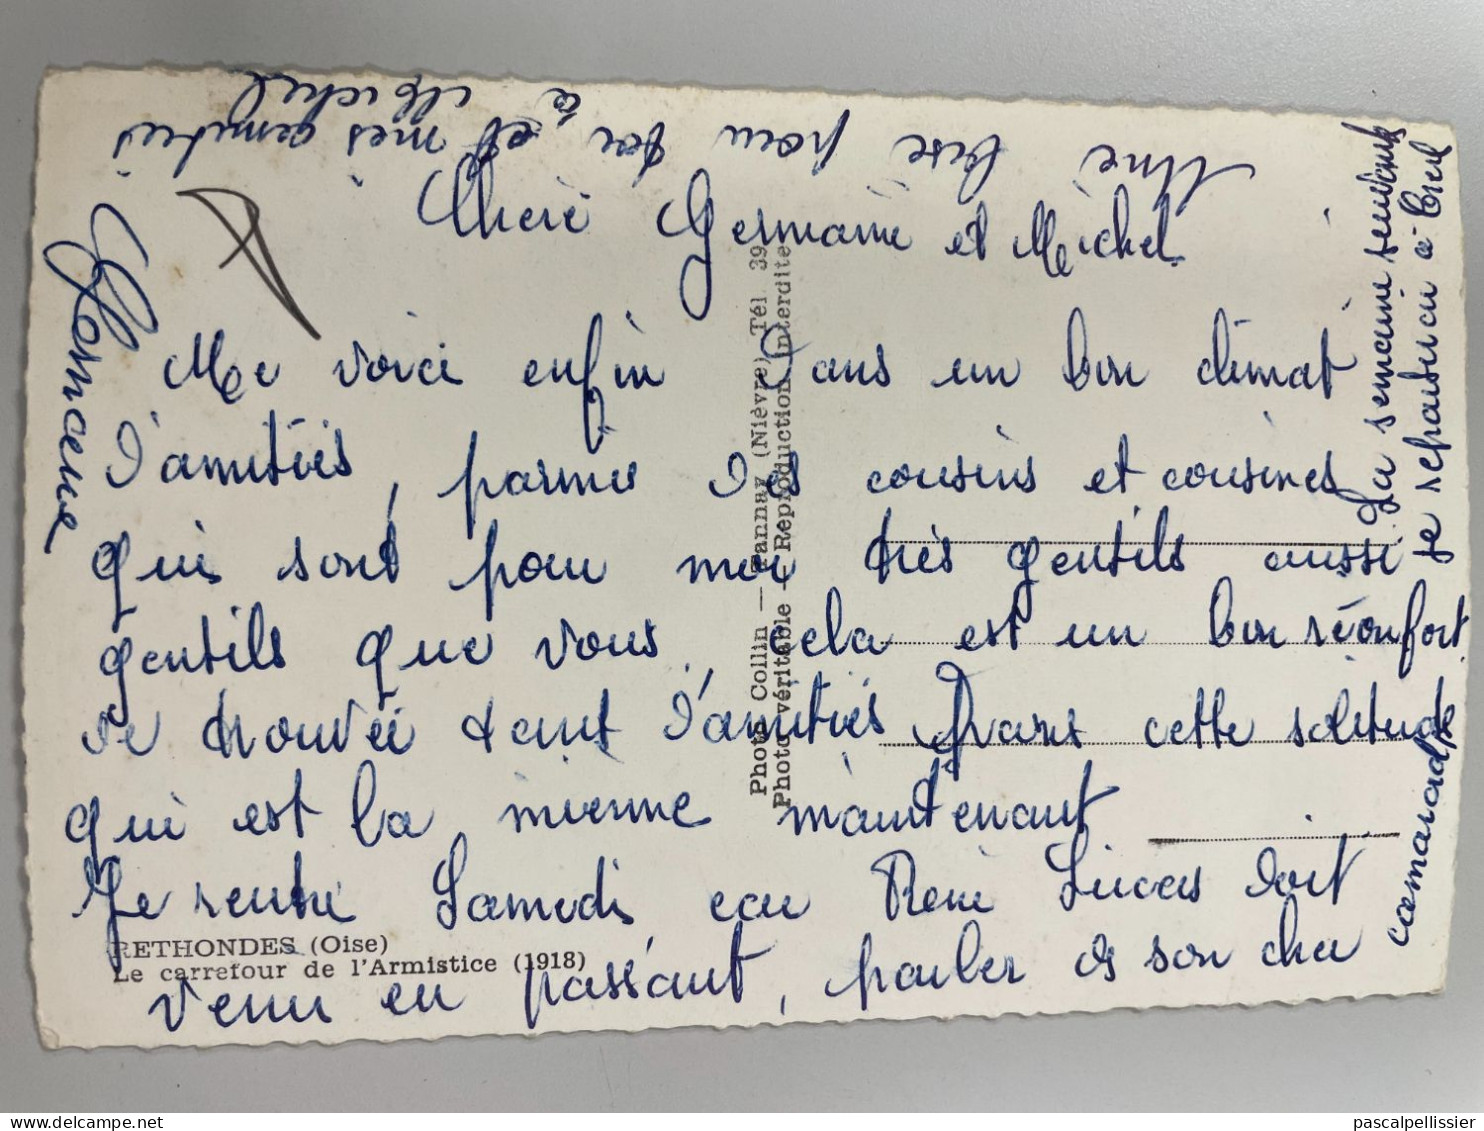 Chere Germaine et Michel
Me voici enfin dans un bon climat
d'amitiés, parmis des cousins et cousines
qui sont pour moi très gentils aussi
gentils que vous, cela est un bon réconfort
de trouvée tant d'amitiés dans cette solitude
qui est la mienne maintenant
Je rentre Samedi, car René Lucas doit
venir en passant, parler à son cher
camarade
La semaine suivante
je repartirai à Creil
Une bise pour toi et mes amitiés
à Michel
RETHONDES (Oise)
Le carrefour de l'Armistice (1918)
Photo Collin — Pannay (Nièvre) Tél 39
Photo véritable - Reproduction interdite
pascalpellissier